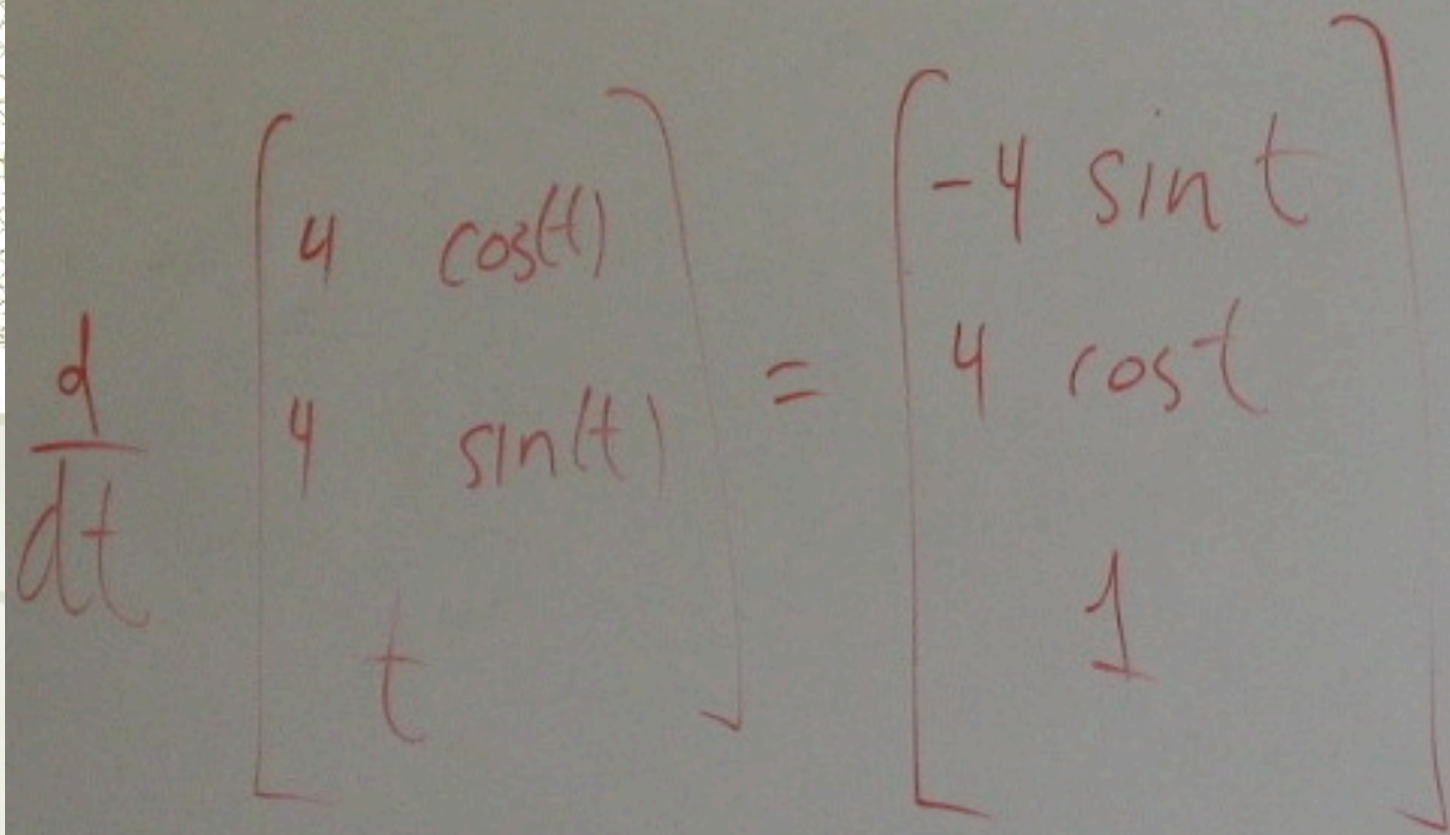 d/dt [4 cos(t) = [-4 sin t
4 sin(t) 4 cos t
t] 1]